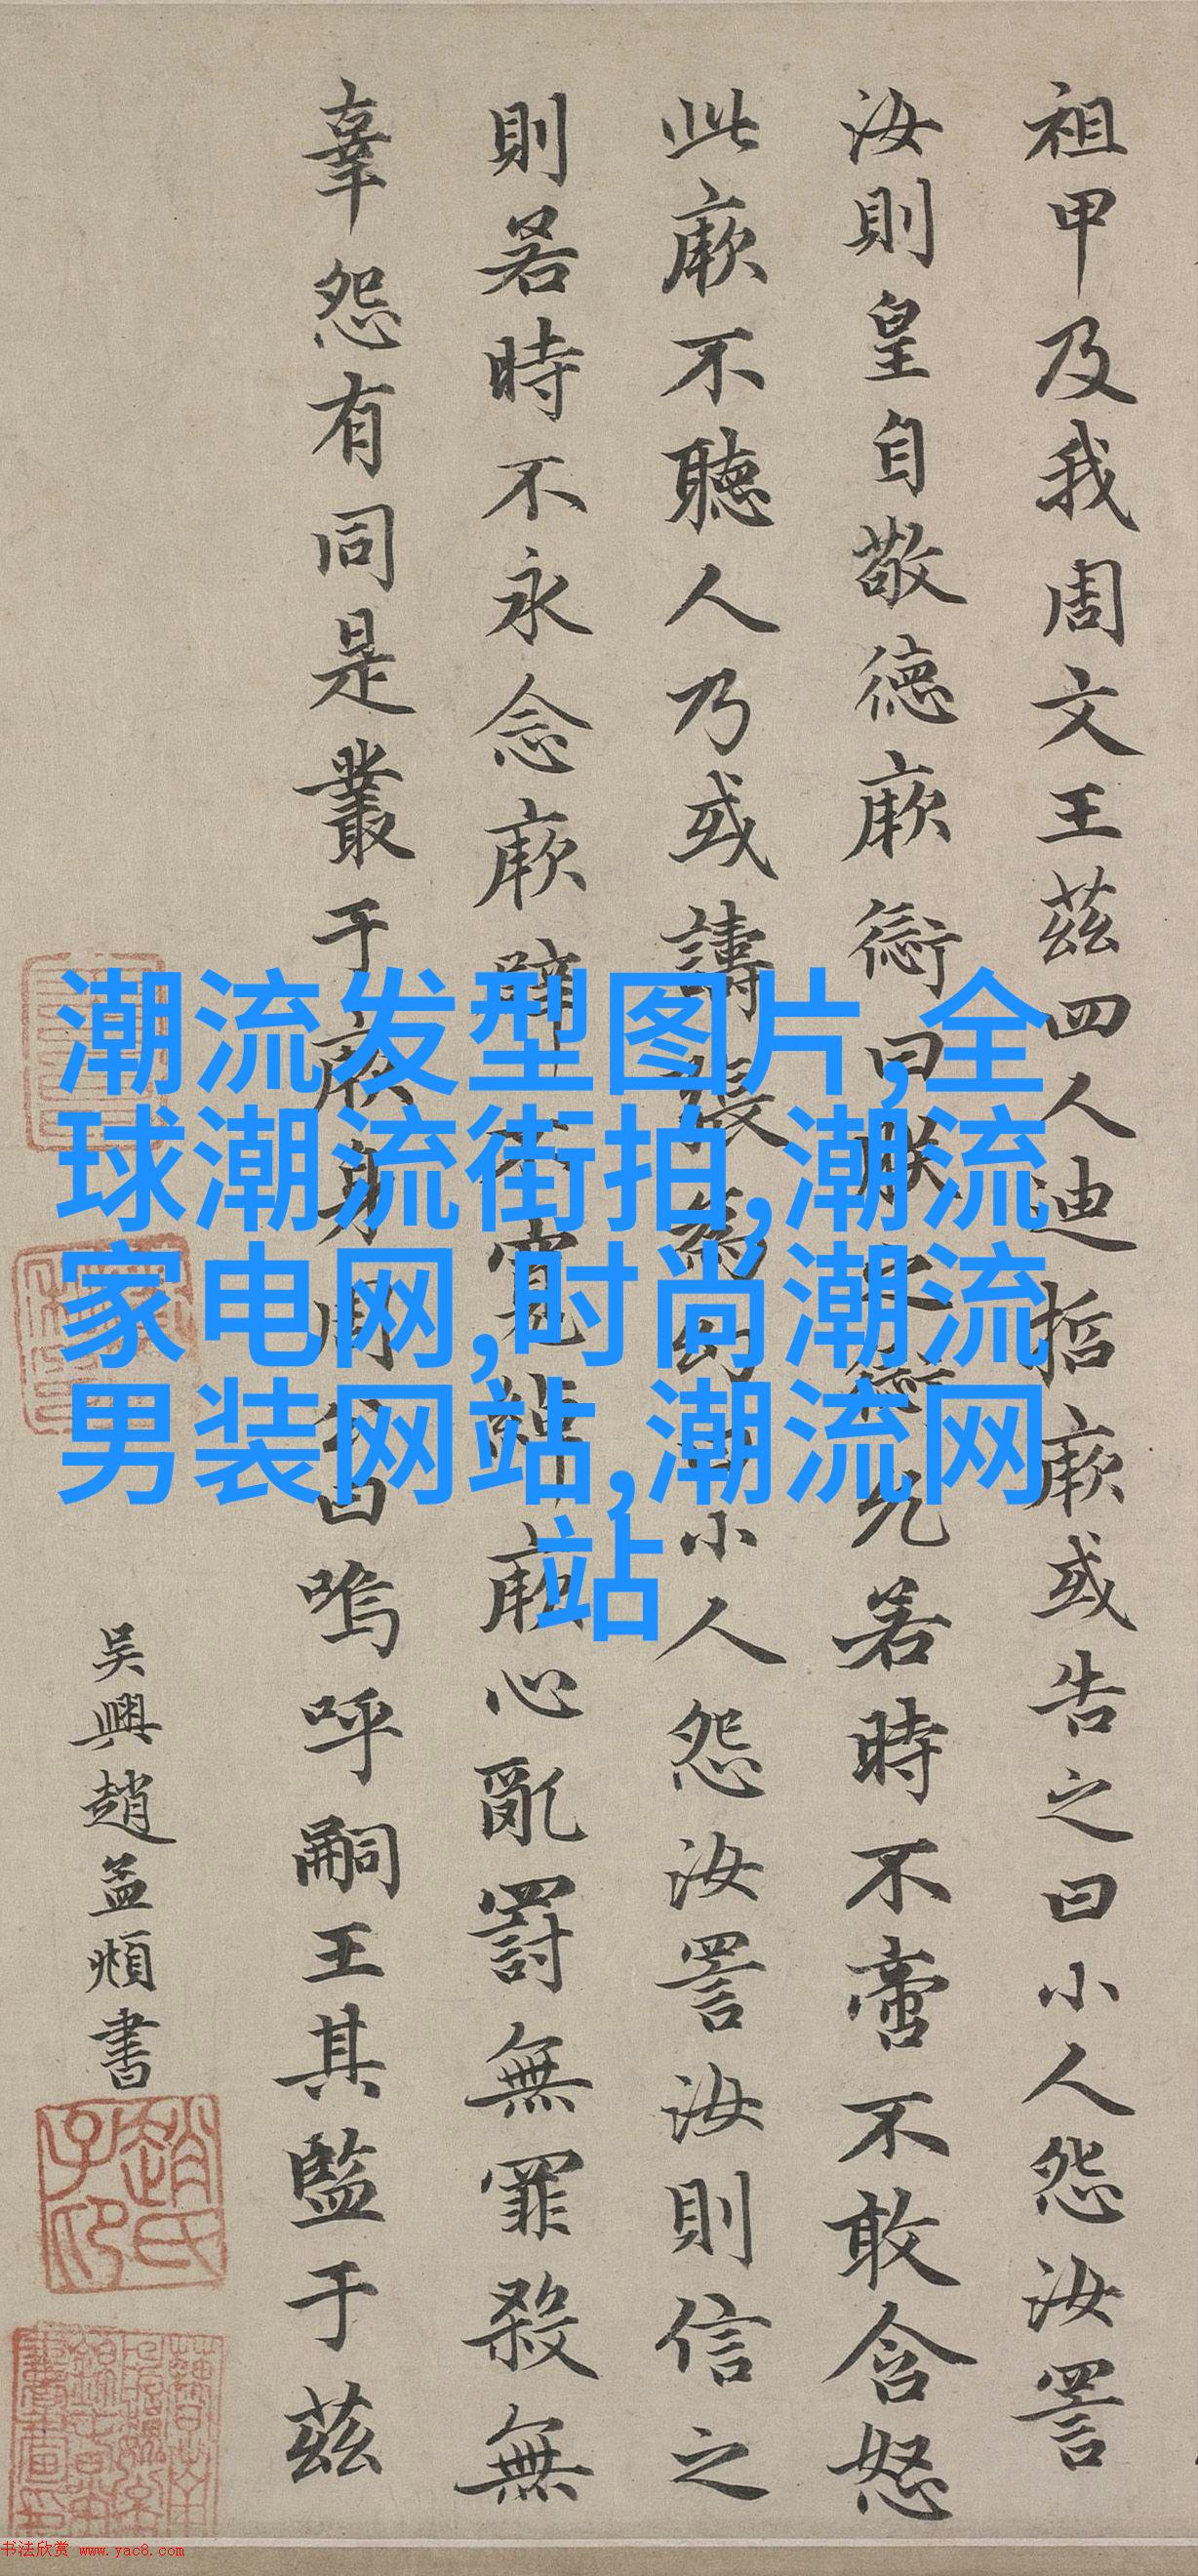 祖甲及我周文王茲四人迪哲厥或告之曰小人怨汝詈
汝則皇自敬德厥愆曰朕之愆允若時不啻不敢含怒
此厥不聽人乃或譸張為幻曰小人怨汝詈汝則信之
則若時不永念厥辟不寬綽厥心亂罰無罪殺無
辜怨有同是叢于厥身周公曰嗚呼嗣王其監于茲
吴興趙孟頫書
趙氏子昂
潮流发型图片,全
球潮流街拍,潮流
家电网,时尚潮流
男装网站,潮流网
站
书法欣赏 www.yac8.com